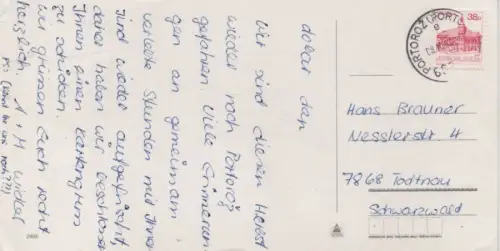 dober dan
Wir sind diesen Herbst
wieder nach Portorož
gefahren. Viele Erinnerun
gen an gemeinsam
verlebte Stunden mit Ihnen
sind wieder aufgefrischt
daher haben wir beschlossen
Ihnen einen Kartengruss
zu schicken.
Wir grüssen Euch recht
herzlich. A + M Winkler
PS: uns noch???!)
38p
PORTOROŽ (PORTO
Hans Brauner
Nesslerstr. 4
7868 Todtnau
Schwarzwald